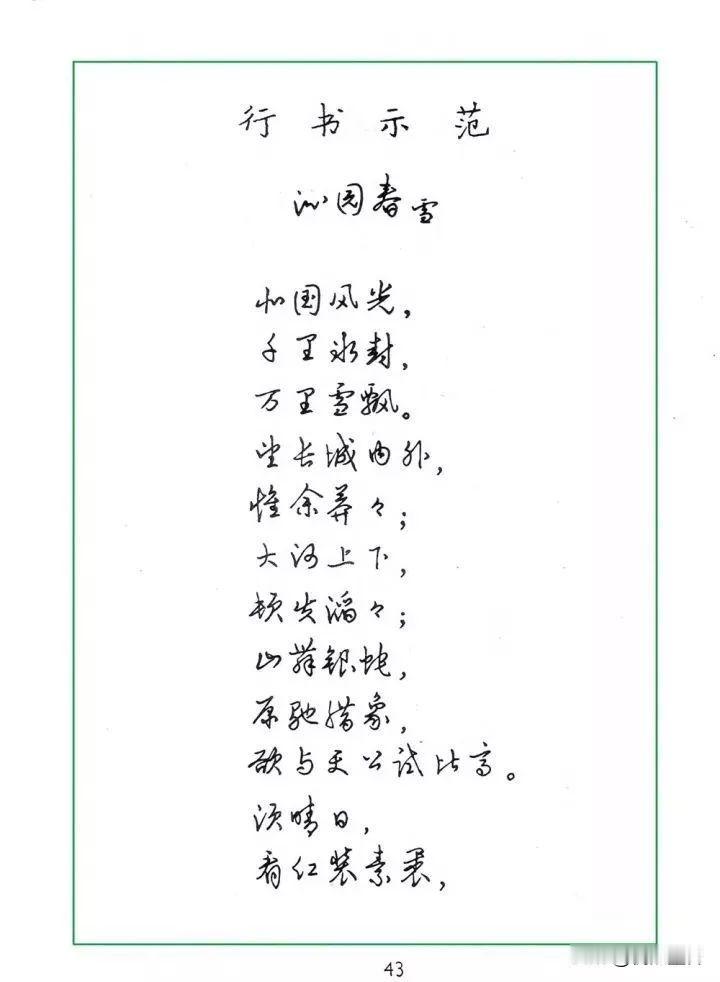 行书示范
沁园春雪
北国风光,
千里冰封,
万里雪飘。
望长城内外,
惟余莽々;
大河上下,
顿失滔々;
山舞银蛇,
原驰蜡象,
欲与天公试比高。
须晴日,
看红装素裹,
43